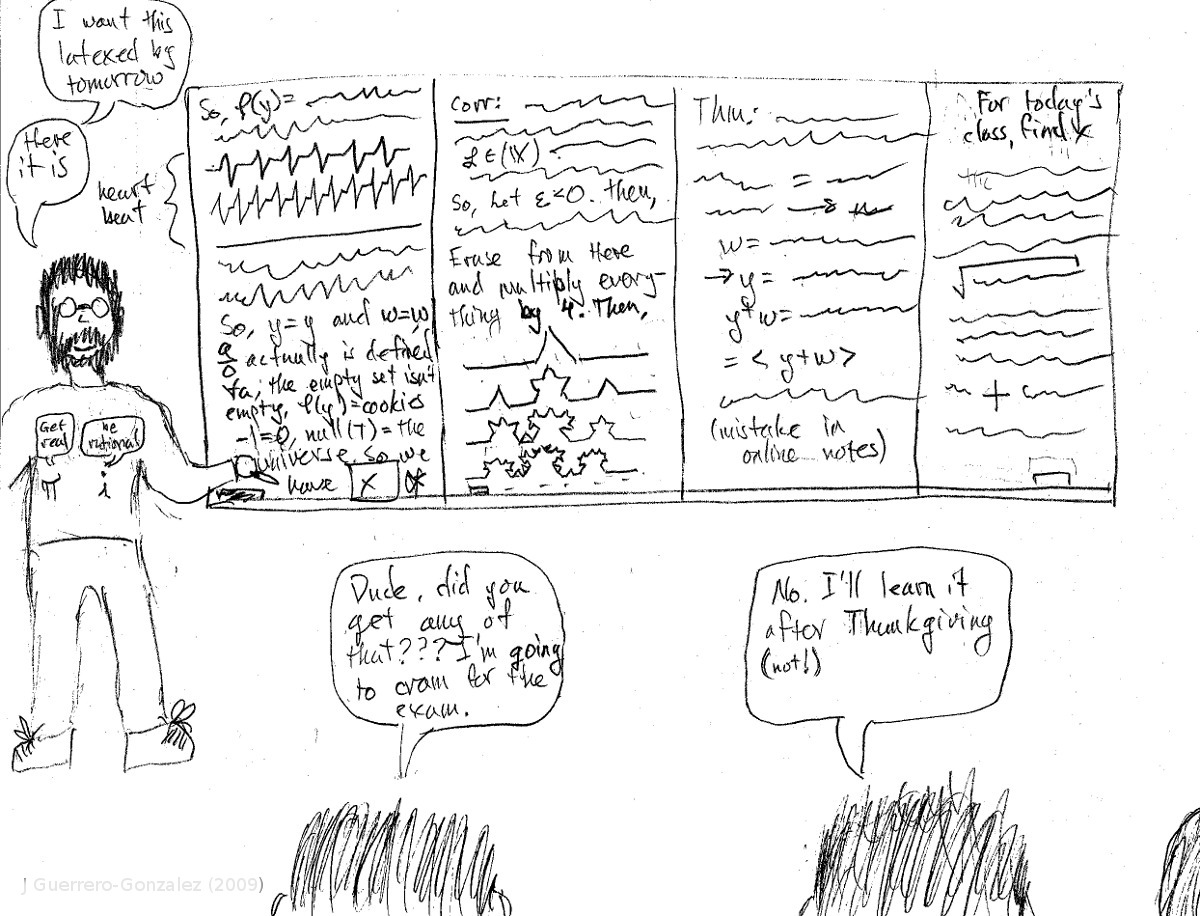 I want this
latexed by
tomorrow
Here
it is
heart
beat
So, f(y)=
Corr:
ℒ ∈ (X)
So, Let ε<0. then,
Erase from Here
and multiply every-
thing by 4. Then,
Thm:
=
w=
→ y =
y+w=
= < y+w >
(mistake in
online notes)
For today's
class, find x
+
So, y=y and w=w,
actually is defined
the empty set isn't
empty, f(y)=cookies
-1=0, null(T)=the
universe. So we
have x
Get
real
be
rational
π i
Dude, did you
get any of
that??? I'm going
to cram for the
exam.
No. I'll learn it
after Thankgiving
(not!)
J Guerrero-Gonzalez (2009)